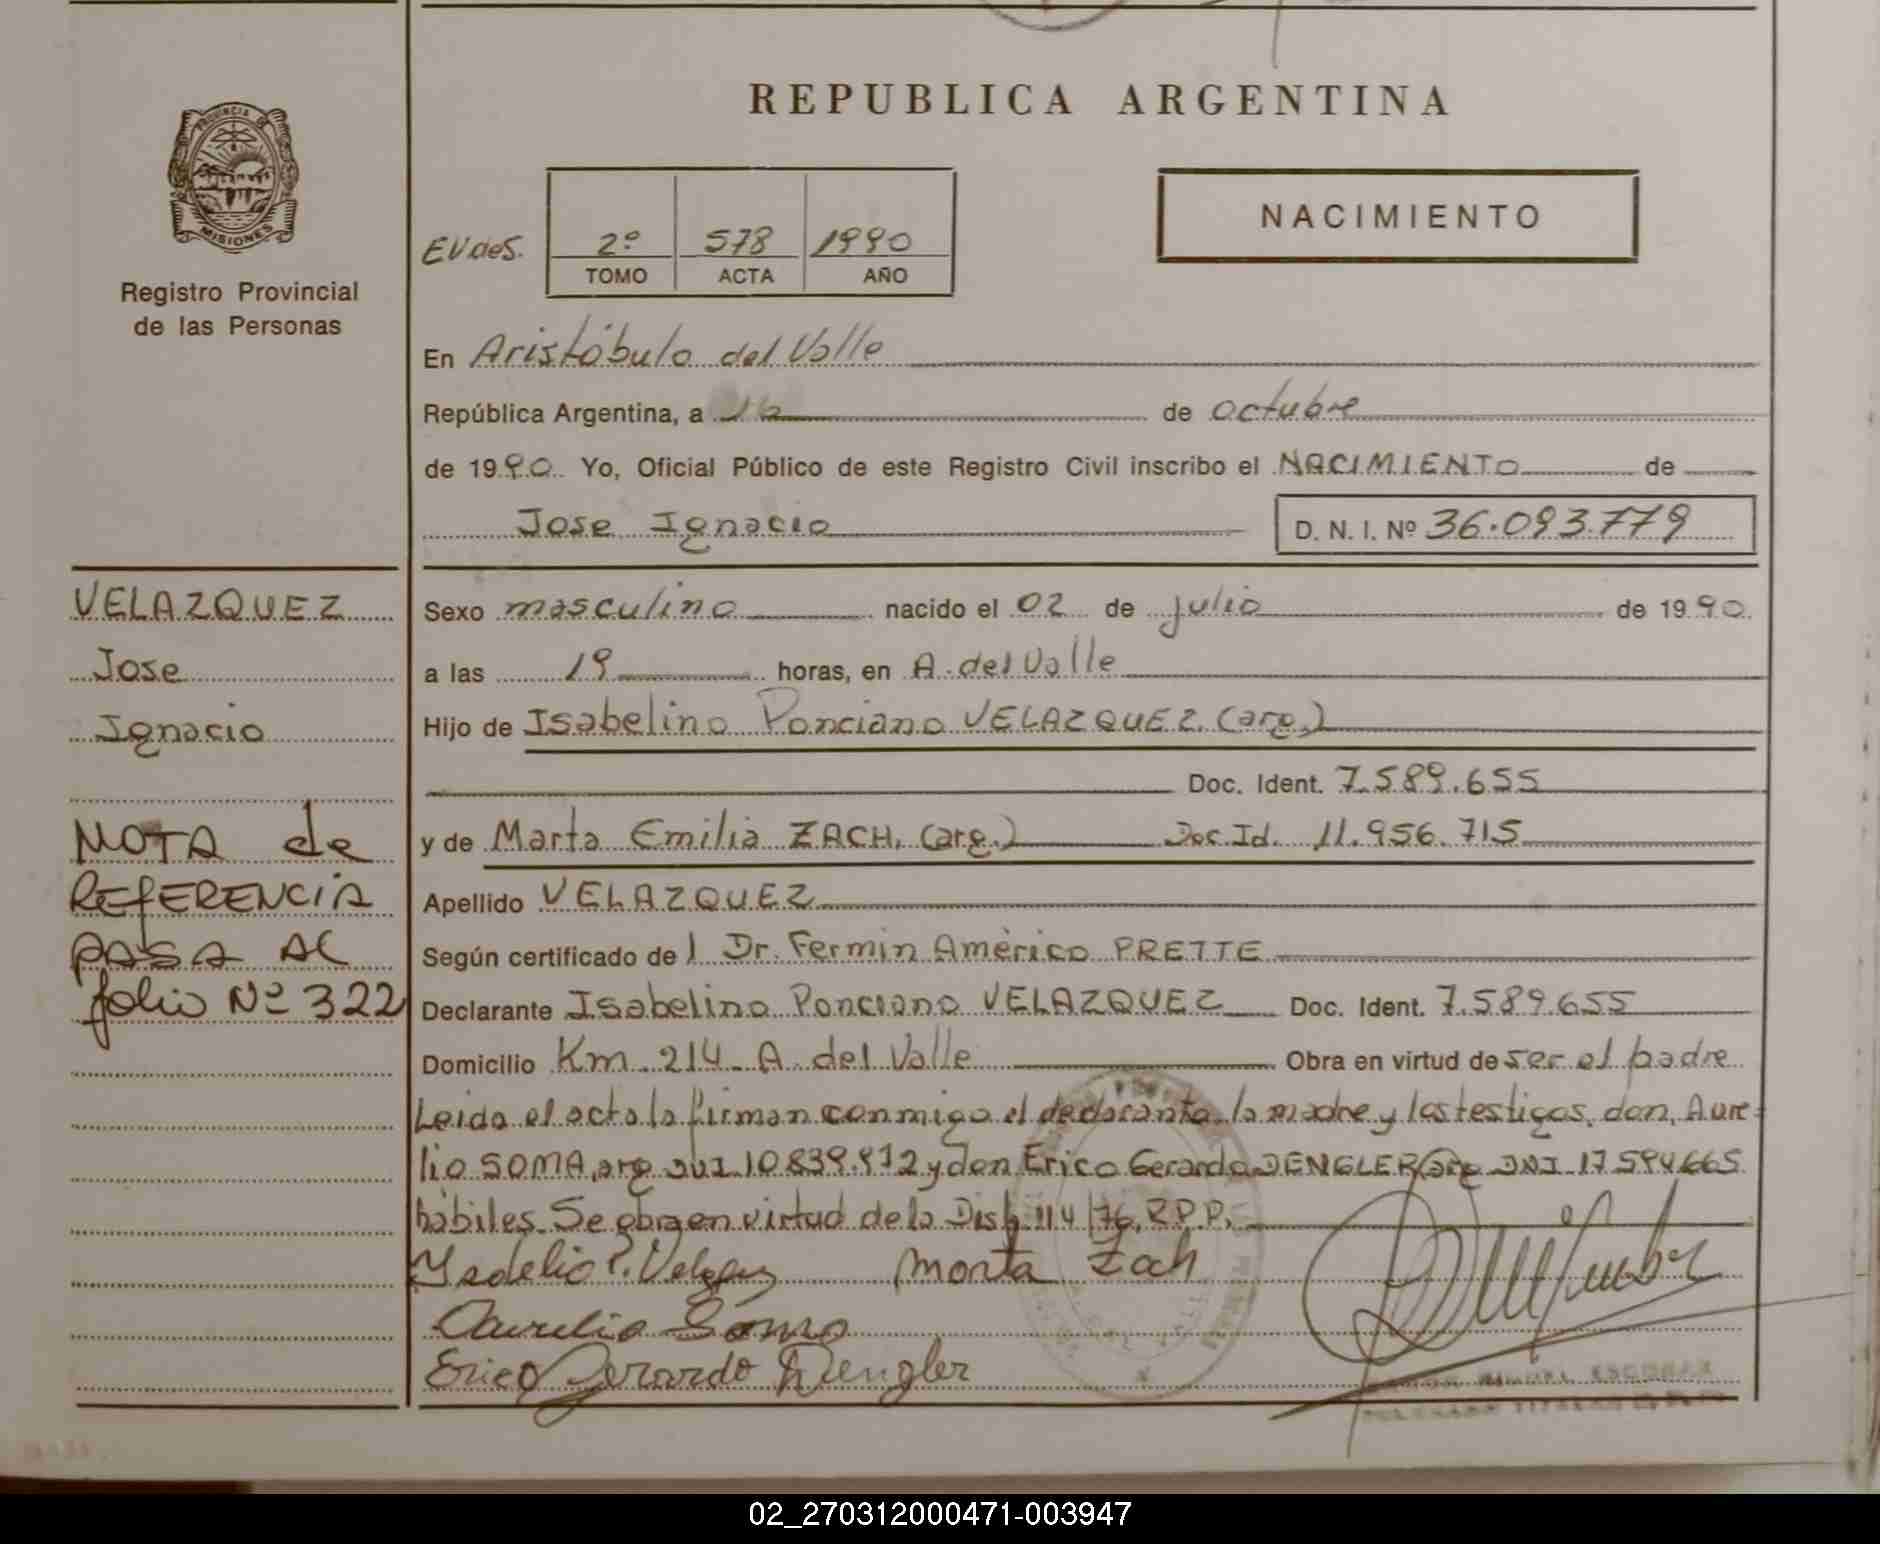 REPUBLICA ARGENTINA
PROVINCIA DE
MISIONES
Registro Provincial
de las Personas
NACIMIENTO
EV.deS. 2º 578 1990
TOMO ACTA AÑO
En Aristóbulo del Valle
República Argentina, a 16 de octubre
de 1990 Yo, Oficial Público de este Registro Civil inscribo el NACIMIENTO de
Jose Ignacio D. N. I. Nº 36.093.779
VELAZQUEZ
Jose
Ignacio
NOTA de
REFERENCIA
PASA AL
folio Nº 322
Sexo masculino nacido el 02 de julio de 1990
a las 19 horas, en A. del Valle
Hijo de Isabelino Ponciano VELAZQUEZ. (arg.)
Doc. Ident. 7.589.655
y de Marta Emilia ZACH. (arg.) Doc. Id. 11.956.715
Apellido VELAZQUEZ
Según certificado de l Dr. Fermin Américo PRETTE
Declarante Isabelino Ponciano VELAZQUEZ Doc. Ident. 7.589.655
Domicilio Km. 214 A. del Valle Obra en virtud de ser el padre
Leida el acta la firman conmigo el declarante, la madre y los testigos, don, Aure-
lio SOMA, arg DNI 10.839.972 y don Erico Gerardo DENGLER, arg DNI 17.594.665
hábiles. Se obra en virtud de la Disp. 114/76, R.P.P.
Marta Zach
Aurelio Soma
Erico Gerardo Dengler
02_270312000471-003947